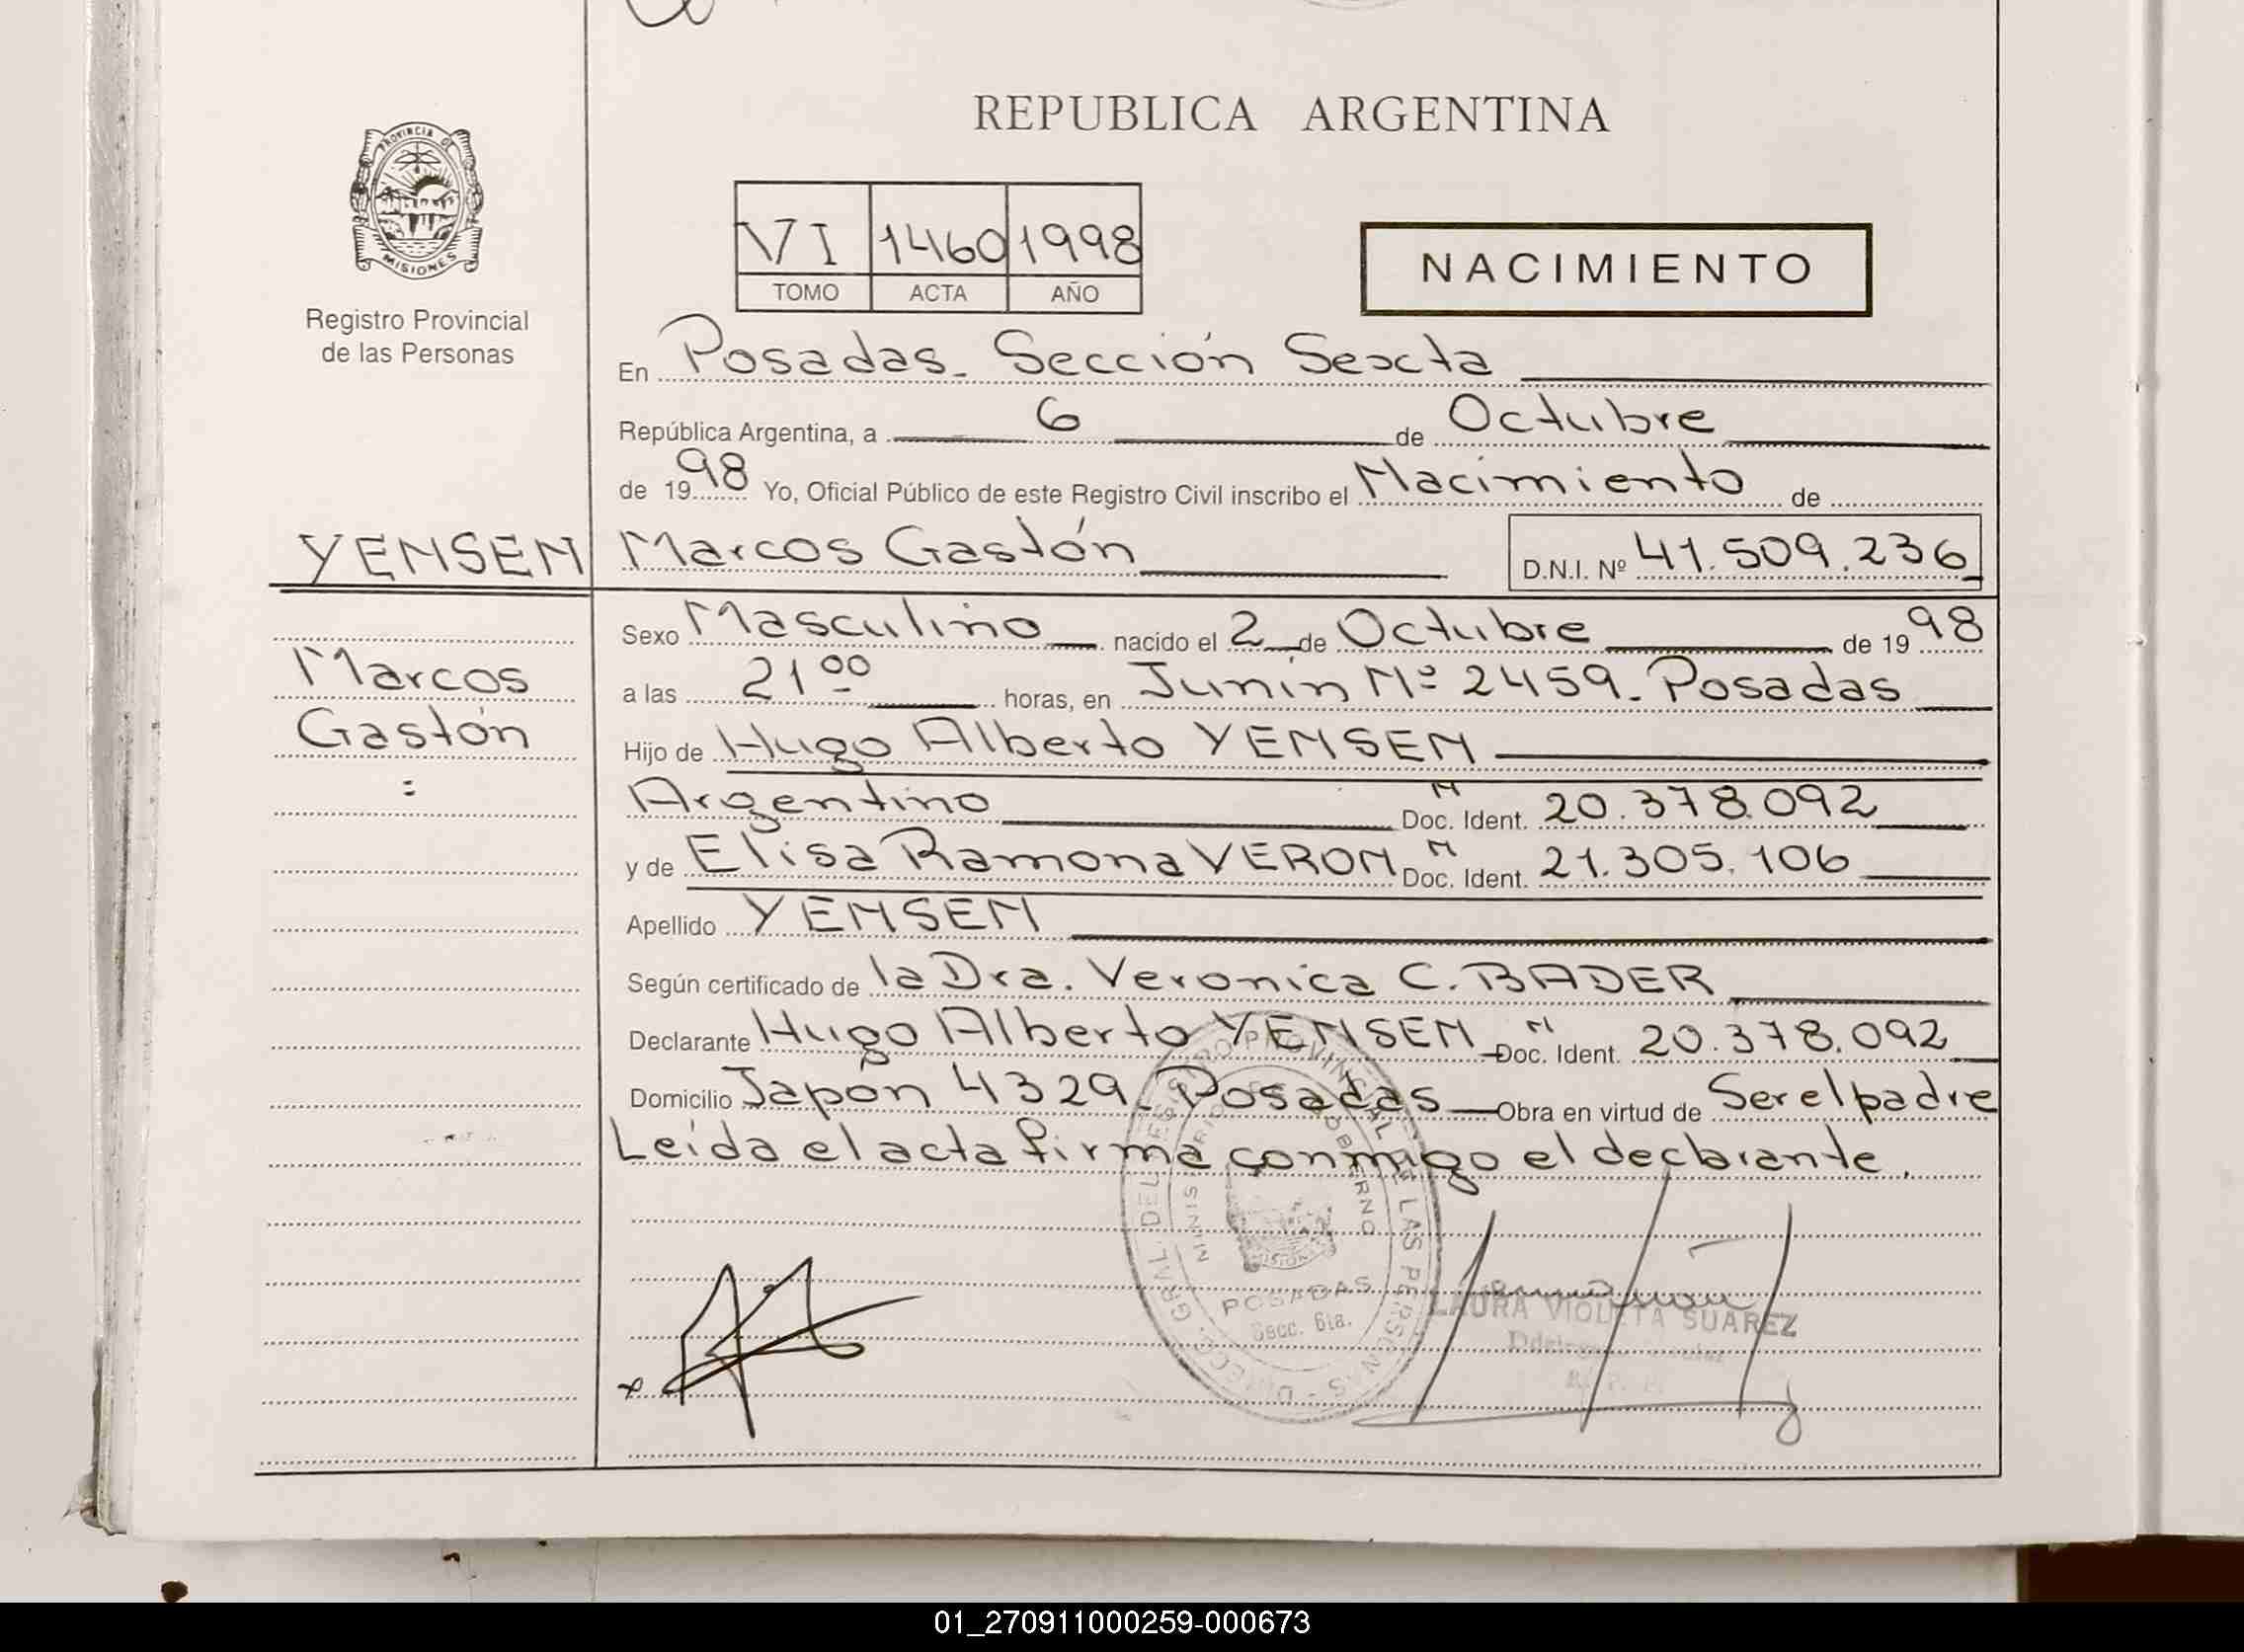 REPUBLICA ARGENTINA
PROVINCIA DE
MISIONES
Registro Provincial
de las Personas
VI 1460 1998
TOMO ACTA AÑO
NACIMIENTO
En Posadas. Sección Sexta
República Argentina, a 6 de Octubre
de 1998 Yo, Oficial Público de este Registro Civil inscribo el Nacimiento de
YENSEN Marcos Gastón D.N.I. Nº 41.509.236
Marcos
Gastón
Sexo Masculino nacido el 2 de Octubre de 1998
a las 21 00 horas, en Junín Nº 2459. Posadas
Hijo de Hugo Alberto YENSEN
Argentino Doc. Ident. N 20.378.092
y de Elisa Ramona VERON Doc. Ident. N 21.305.106
Apellido YENSEN
Según certificado de la Dra. Veronica C. BADER
Declarante Hugo Alberto YENSEN Doc. Ident. N 20.378.092
Domicilio Japón 4329. Posadas Obra en virtud de Ser el padre
Leída el acta firma conmigo el declarante.
DIRECC. GRAL. DEL REGISTRO PROVINCIAL DE LAS PERSONAS
MINISTERIO DE GOBIERNO
MISIONES
POSADAS
Secc. 6ta.
LAURA VIOLETA SUAREZ
01_270911000259-000673